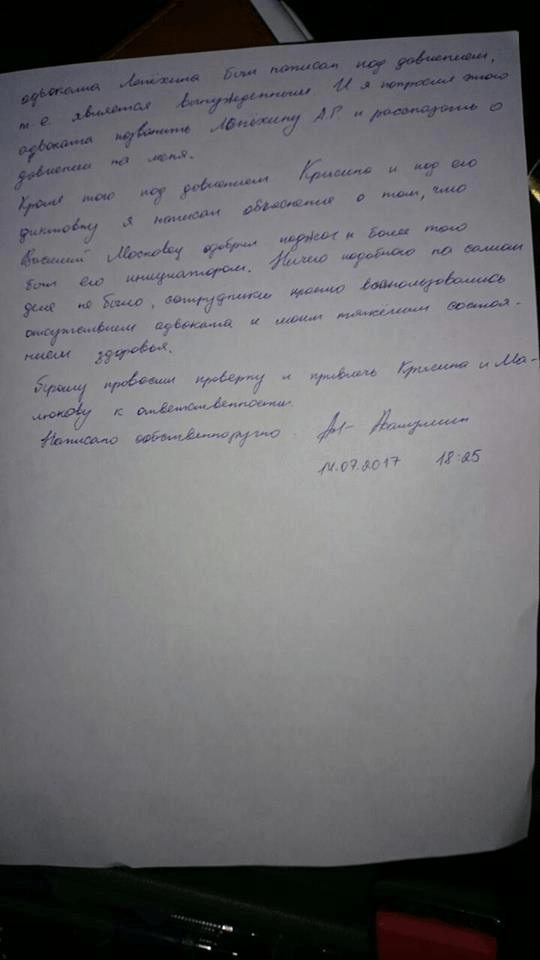 адвоката Лопёхина был написан под давлением,
т.е. является вынужденным. И я попросил этого
адвоката позвонить Лопёхину А.Г. и рассказать о
давлении на меня.
Кроме того под давлением Крысина и под его
диктовку я написал объяснение о том, что
Василий Московец одобрил поджог и более того
был его инициатором. Ничего подобного на самом
деле не было, сотрудники просто воспользовались
отсутствием адвоката и моим тяжёлым состоя-
нием здоровья.
Прошу провести проверку и привлечь Крысина и Ма-
люкову к ответственности.
Написано собственноручно.
14.07.2017 18:25